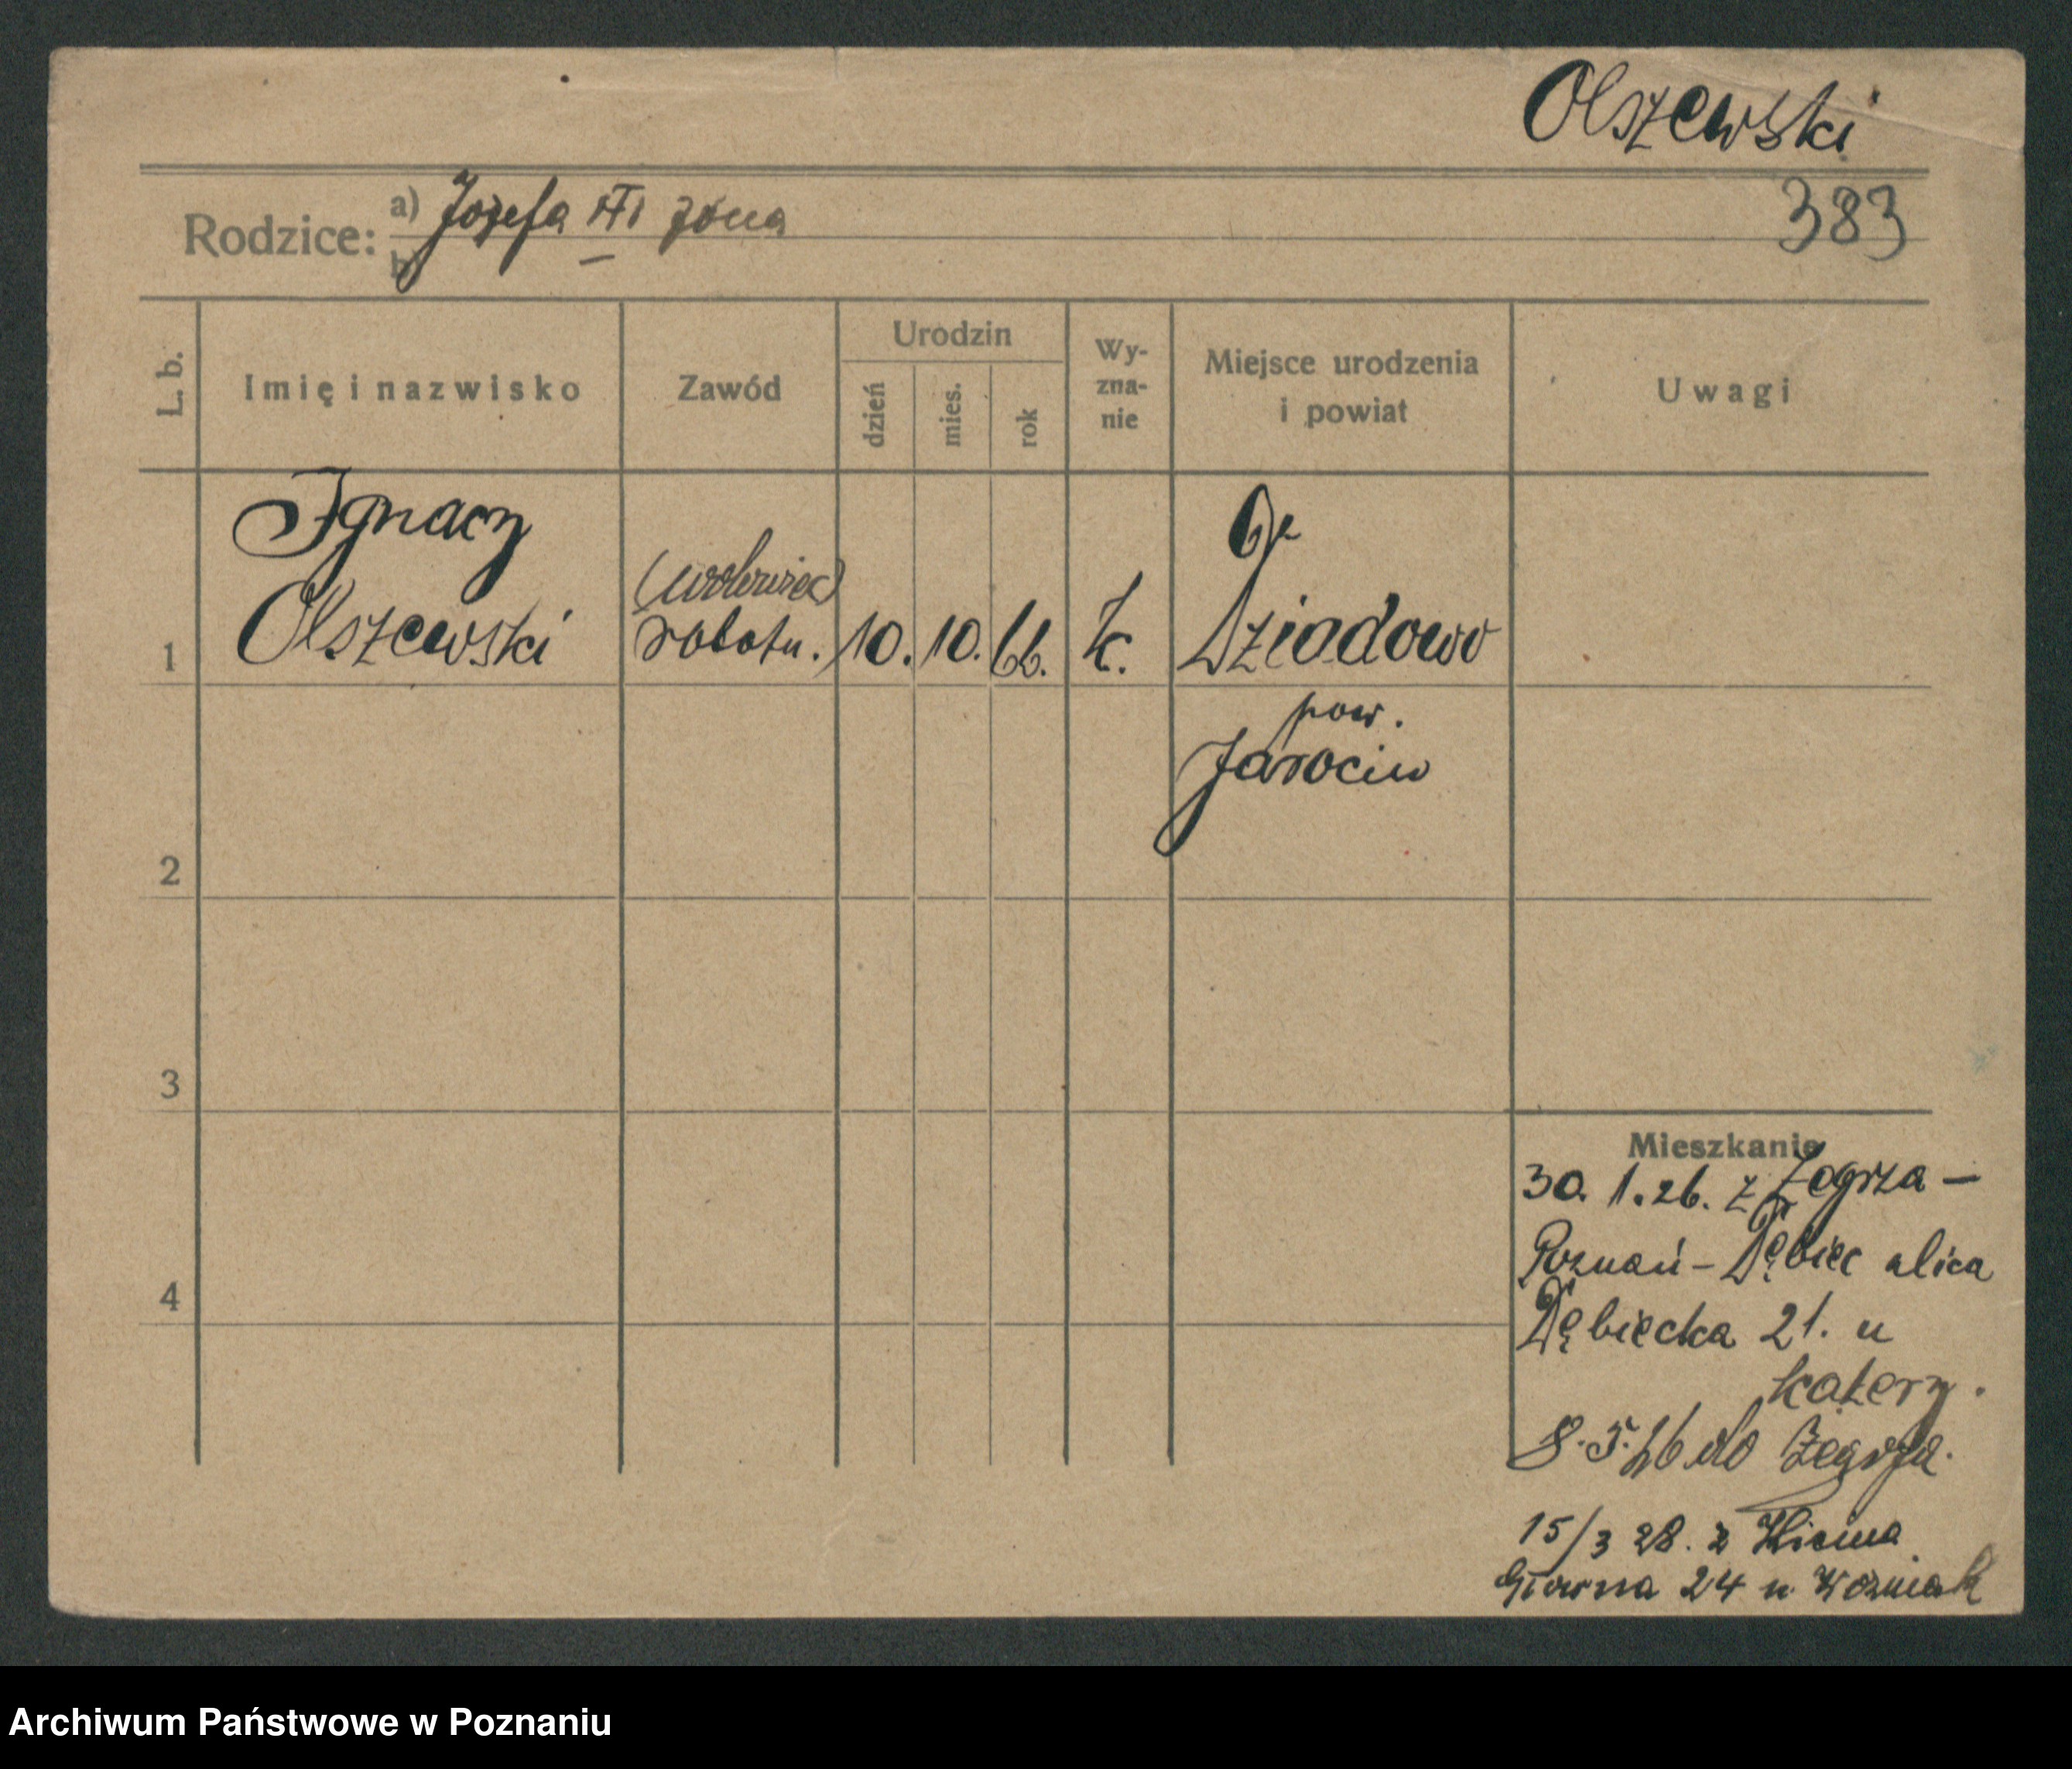 Olszewski
383
Rodzice: a) Józefa żona
b)
L. b. Imię i nazwisko Zawód Urodzin dzień mies. rok Wy-zna-nie Miejsce urodzenia i powiat Uwagi
Ignacy
(wdowiec)
1 Olszewski robotn. 10. 10. 66. k. Dziadowo
pow.
Jarocin
2
3
4
Mieszkanie
30. 1. 26. z Żegrza –
Poznań – Dębiec ulica
Dębiecka 21. u
8.5.26 do Żegrza.
15/3 28. z Kicina
Główna 24 u Woźniak
Archiwum Państwowe w Poznaniu